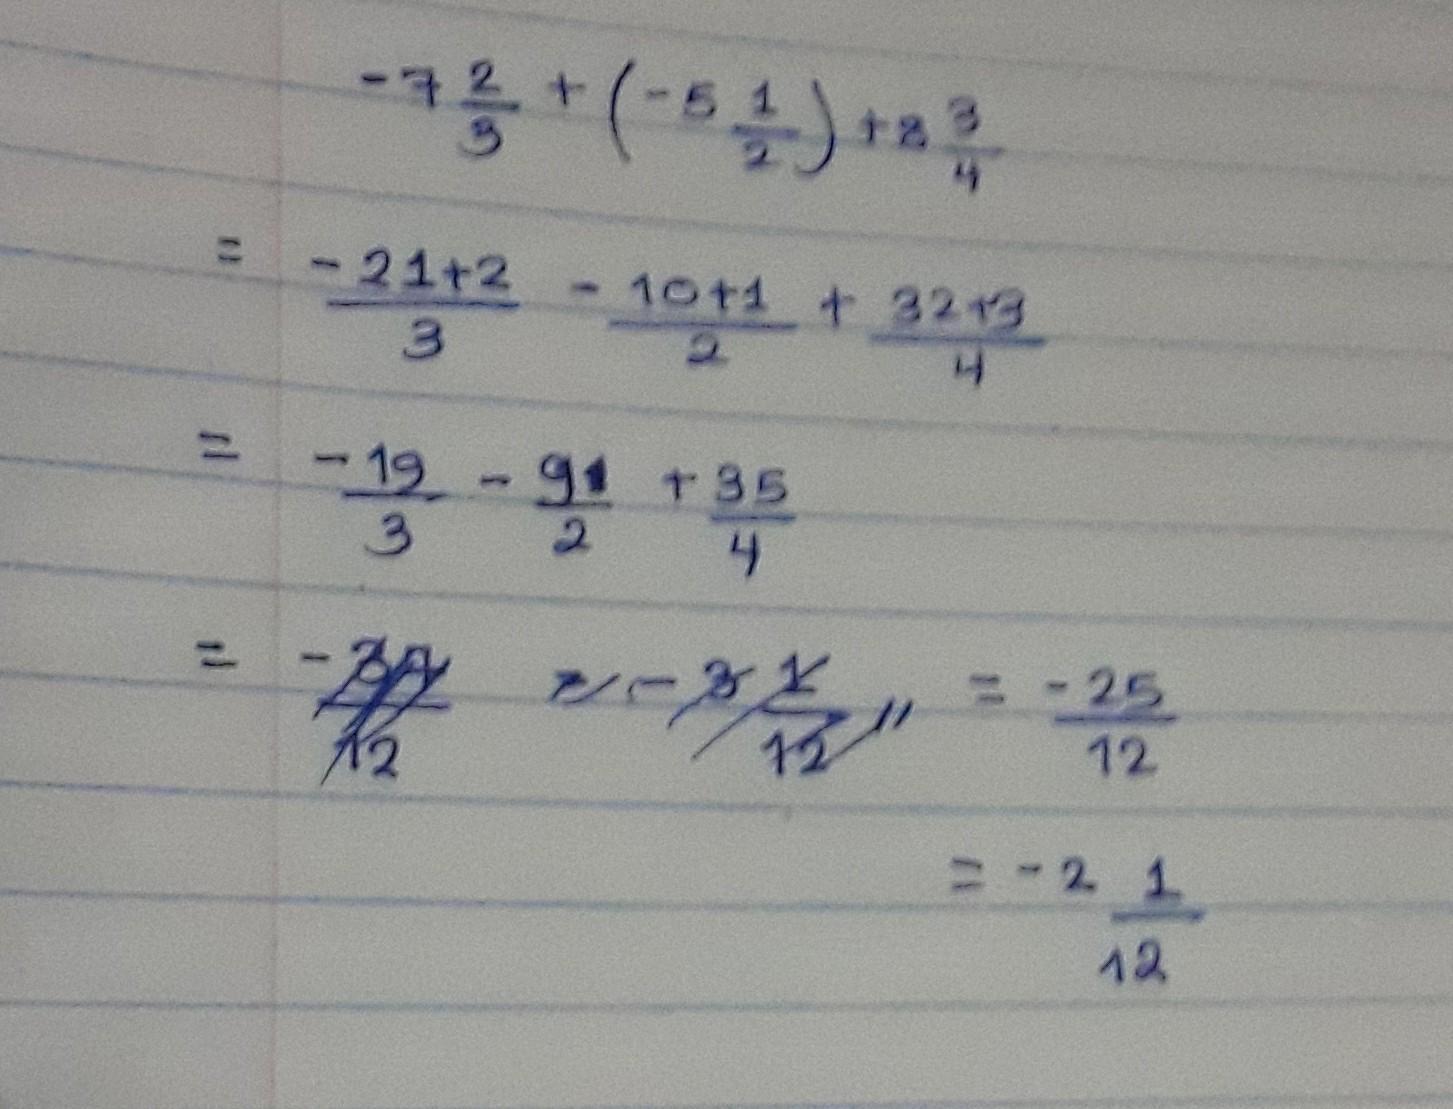 -7 2/3 + (-5 1/2) + 8 3/4
= (-21+2)/3 - (10+1)/2 + (32+3)/4
= -19/3 - 9/2 + 35/4
= = - 3 1/12 " = -25/12
= -2 1/12